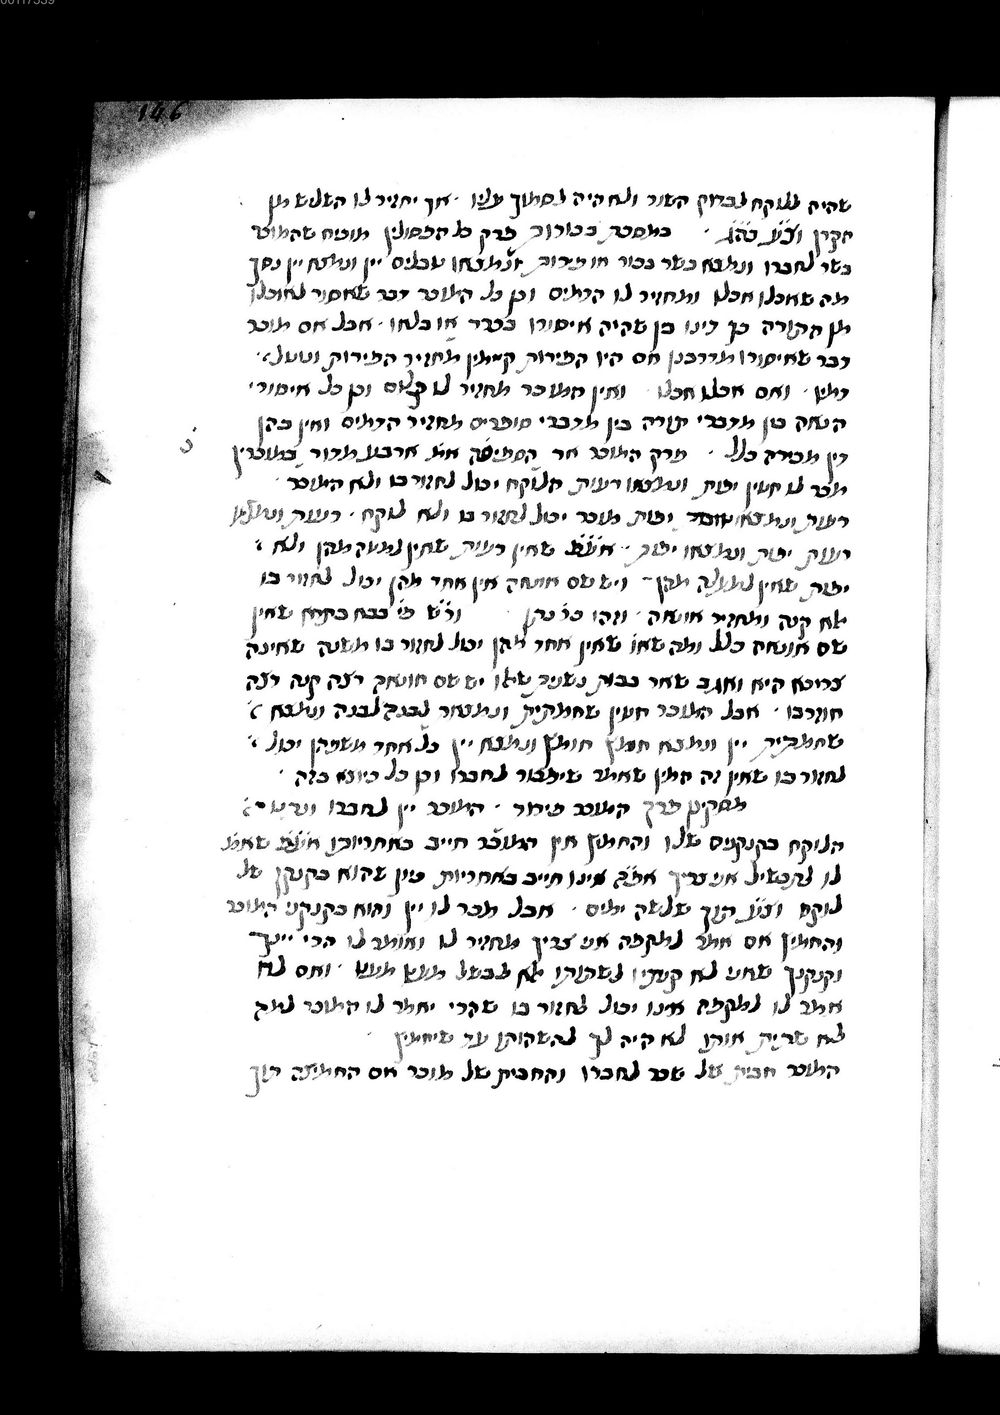 146
שהיה ללוקח לבדוק השור ולא היה לסמוך עליו · אך יחזיר לו השליש מן
הקרן וצ״ע · במסכת בכורות פרק כל הפסולין מוכיח שהמוכר
בשר לחברו ונמצא בשר בכור או פירות ונמצאו טבלים יין ונמצא יין נסך
מה שאכלו אכלו ומחזיר לו הדמים וכן כל המוכר דבר שאסור לאוכלו
מן התורה כך דינו בין שהיה איסורו בכרת או בלאו · אבל אם מוכר
דבר שאיסורו מדרבנן אם היו הפירות קיימין מחזיר הפירות ונוטל
דמיו · ואם אכלן אכלן · ואין המוכר מחזיר לו כלום וכן כל איסורי
הנאה בין מדברי תורה בין מדברי סופרים מחזיר הדמים ואין בהן
דין מכירה כלל · פרק המוכר את הספינה ארבע מדות במוכרין
מכר לו חטין יפות ונמצאו רעות הלוקח יכול לחזור בו ולא המוכר ·
רעות ונמצאו יפות מוכר יכול לחזור בו ולא לוקח · רעות ונמצאו
רעות יפות ונמצאו יפות · אע״פ שאין רעות שאין למטה מהן ולא
יפות שאין למעלה מהן ויש שם אונאה אין אחד מהן יכול לחזור בו
אלא קנה ומחזיר אונאה · וזהו כר׳ נתן ור״ש פי׳ בבא בתרא שאין
שם אונאה כלל ומה שאו׳ שאין אחד מהן יכול לחזור בו משנה שאינה
צריכא היא ואגב שאר בבות נשנית שאלו יש שם אונאה רצה קנה רצה
חוזר בו · אבל המוכר חטין שחמתית ונמצאת לבנה לבנה ונמצא
שחמתית יין ונמצא חמץ חומץ ונמצא יין כל אחד משניהן יכול
לחזור בו שאין זה המין שאמר שימכור לחברו וכן כל כיוצא בזה ·
מסקינן פרק המוכר פירות · המוכר יין לחברו ונתנו
הלוקח בקנקנים שלו והחמיץ אין המוכר חייב באחריותו אע״פ שאמ׳
לו לתבשיל אני צריך אינו חייב באחריות כיון שהוא בקנקן של
לוקח וצ״ע תוך שלשה ימים · אבל מכר לו יין והוא בקנקני המוכר
והחמיץ אם אמר למקפה אני צריך מחזיר לו ואומר לו הרי יינך
וקנקנך שאני לא קניתיו לשתותו אלא לבשל מעט מעט · ואם לא
אמר לו למקפה אינו יכול לחזור בו שהרי יאמר לו המוכר למה
לא שתית אותו לא היה לך להשהותו עד שיחמיץ ·
המוכר חבית של שכר לחברו והחבית של מוכר אם החמיצה תוך